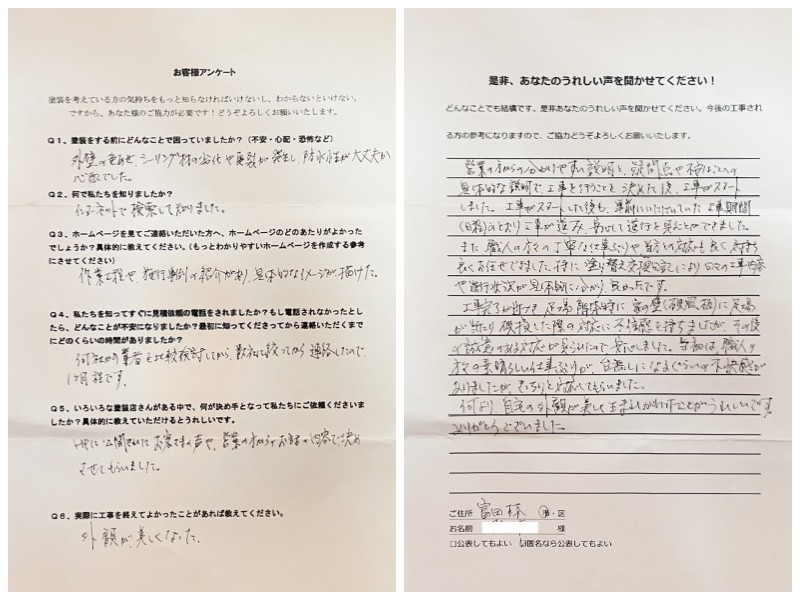 お客様アンケート
塗装を考えている方の気持ちをもっと知らなければいけないし、わからないといけない。
ですから、あなた様のご協力が必要です！どうぞよろしくお願いいたします。
Q１、塗装をする前にどんなことで困っていましたか？（不安・心配・恐怖など）
外壁の色あせ、シーリング材の劣化や亀裂が発生し、防水性が大丈夫か
心配でした。
Q２、何で私たちを知りましたか？
インターネットで検索して知りました。
Q３、ホームページを見てご連絡いただいた方へ、ホームページのどのあたりがよかった
でしょうか？具体的に教えてください。（もっとわかりやすいホームページを作成する参考
にさせてください）
作業工程や、施行事例の紹介があり、具体的なイメージが描けた。
Q４、私たちを知ってすぐに見積依頼の電話をされましたか？もし電話されなかったとし
たら、どんなことが不安になりましたか？最初に知ってくださってから連絡いただくまで
にどのくらいの時間がありましたか？
何社かの業者を比較検討してから、数社に絞ってから連絡したので、
1ヶ月程です。
Q５、いろいろな塗装店さんがある中で、何が決め手となって私たちにご依頼くださいま
したか？具体的に教えていただけるとうれしいです。
HPに公開されたお客さまの声や、営業の方からのお話の内容で決め
させてもらいました。
Q６、実際に工事を終えてよかったことがあれば教えてください。
外観が美しくなった。
是非、あなたのうれしい声を聞かせてください！
どんなことでも結構です。是非あなたのうれしい声を聞かせてください。今後の工事され
る方の参考になりますので、ご協力どうぞよろしくお願いいたします。
営業の方からの分かりやすい説明と、疑問点や不安なことへの
具体的な説明で、工事を行うことを決めた後、工事がスタート
しました。工事がスタートした後も、事前にいただいていた工事期間
(日程)どおり工事が進み、安心して進行を見ることができました。
また、職人の方々の丁寧な仕事ぶりや、対応も良く気持ち
良くお任せできました。特に、塗り替え交換日記により日々の工事内容
や進行状況が具体的に分かり、良かったです。
工事完了が近づき足場解体時に家の壁(破風板)に足場
が当たり破損した際の対応に不信感を持ちましたが、その後
の誠意のある対応が見られたので安心しました。当初は、職人の
方々の素晴らしい仕事ぶりが、台無しになるぐらいの不快感が
ありましたが、きっちりと対応してもらいました。
何より、自宅の外観が美しく生まれかわったことがうれしいです。
ありがとうございました。
ご住所 富田林 市・区
お名前 様
□公表してもよい ☑匿名なら公表してもよい